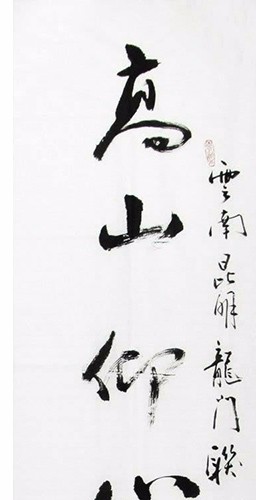 雲南昆明龍門联
高山仰